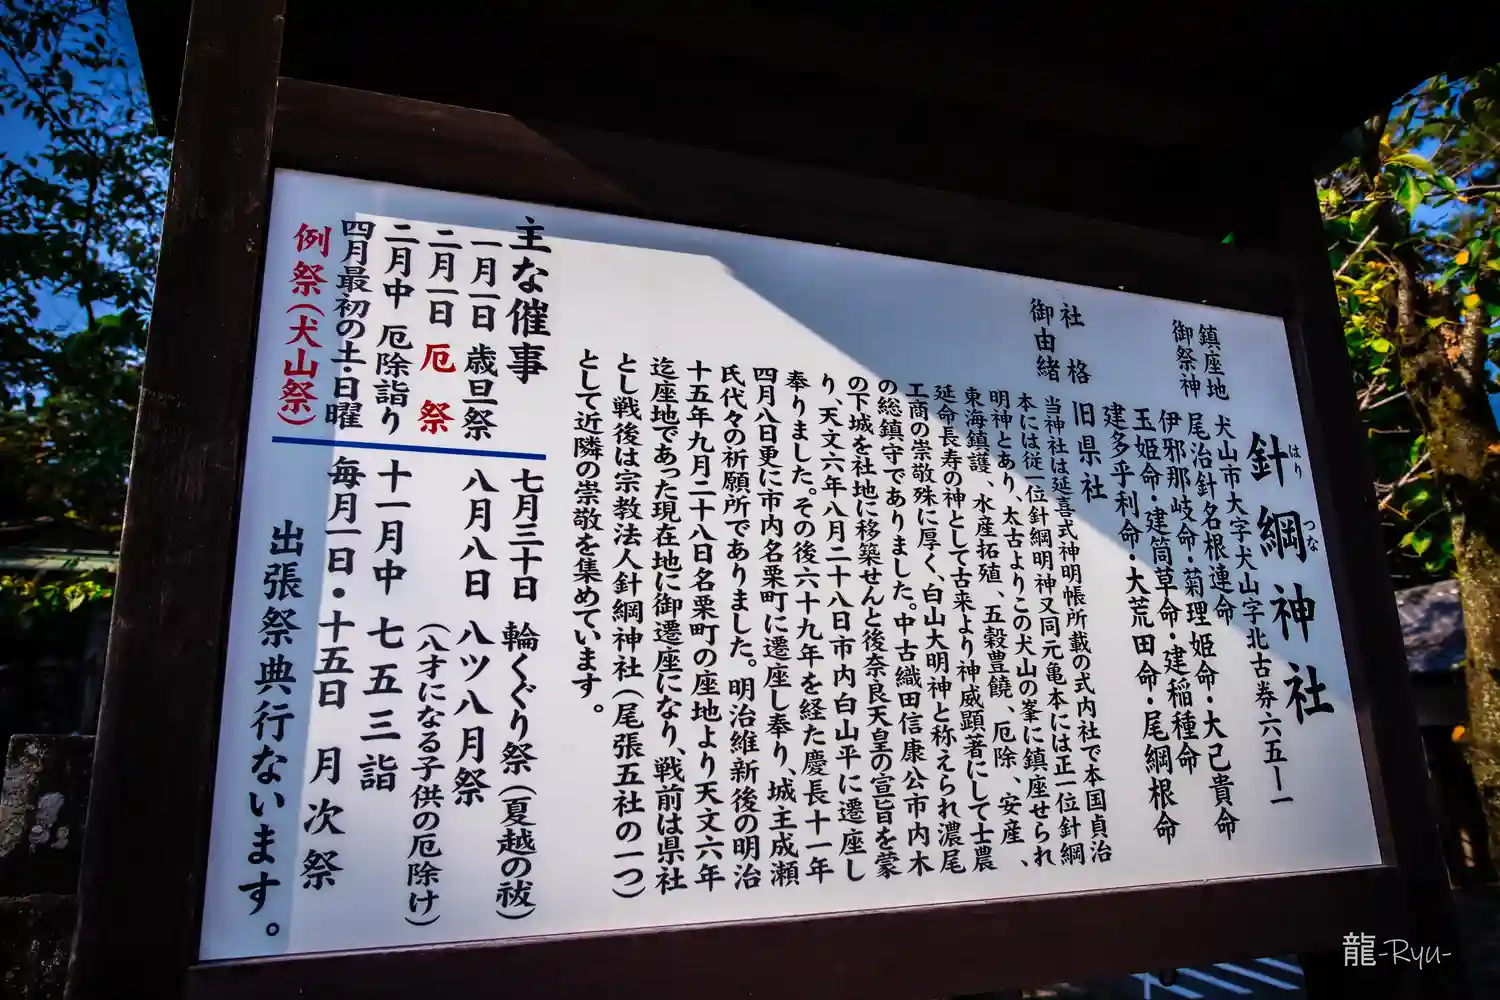 針綱神社
はり
つな
鎮座地 犬山市大字犬山字北古券六五ー一
御祭神 尾治針名根連命・菊理姫命・大己貴命
伊邪那岐命・建筒草命・建稲種命
玉姫命・大荒田命・尾綱根命
建多乎利命
社格 旧県社
御由緒 当神社は延喜式神明帳所載の式内社で本国貞治
本には従一位針綱明神又同元亀本には正一位針綱
明神とあり、太古よりこの犬山の峯に鎮座せられ
東海鎮護、水産拓殖、五穀豊饒、厄除、安産、
延命長寿の神として古来より神威顕著にして士農
工商の崇敬殊に厚く、白山大明神と称えられ濃尾
の総鎮守でありました。中古織田信康公市内木
の下城を社地に移築せんと後奈良天皇の宣旨を蒙
り、天文六年八月二十八日市内白山平に遷座し
奉りました。その後六十九年を経た慶長十一年
四月八日更に市内名栗町に遷座し奉り、城主成瀬
氏代々の祈願所でありました。明治維新後の明治
十五年九月二十八日名栗町の座地より天文六年
迄座地であった現在地に御遷座になり、戦前は県社
とし戦後は宗教法人針綱神社(尾張五社の一つ)
として近隣の崇敬を集めています。
主な催事
一月一日 歳旦祭
二月一日 厄祭
二月中 厄除詣り
四月最初の土・日曜
例祭(犬山祭)
七月三十日 輪くぐり祭(夏越の祓)
八月八日 八ツ八月祭
(八才になる子供の厄除け)
十一月中 七五三詣
毎月一日・十五日 月次祭
出張祭典行ないます。
龍-Ryu-